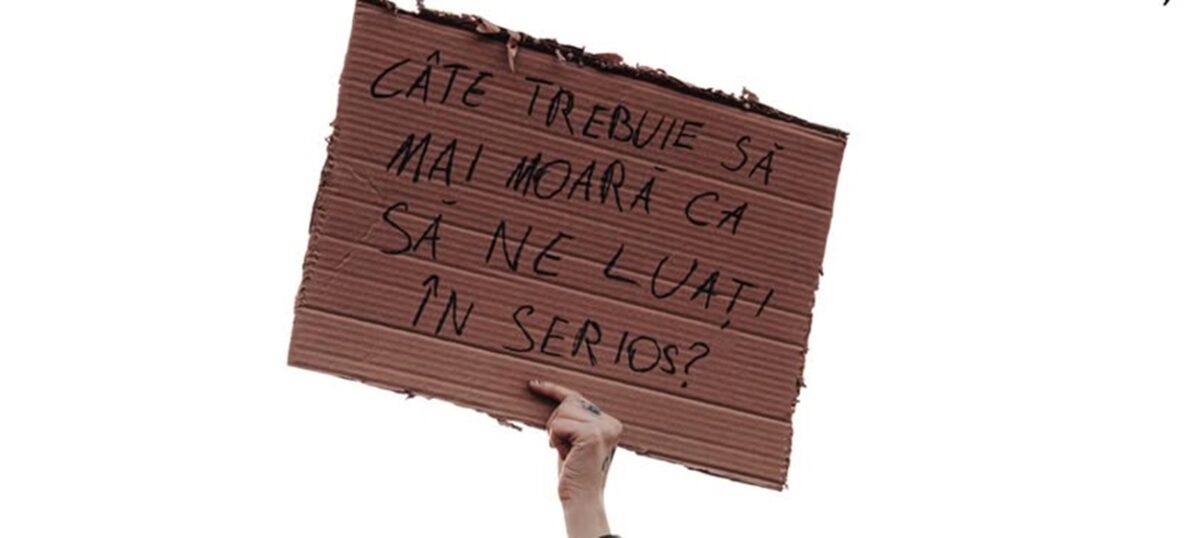 CÂTE TREBUIE SĂ
MAI MOARĂ CA
SĂ NE LUAȚI
ÎN SERIOS?